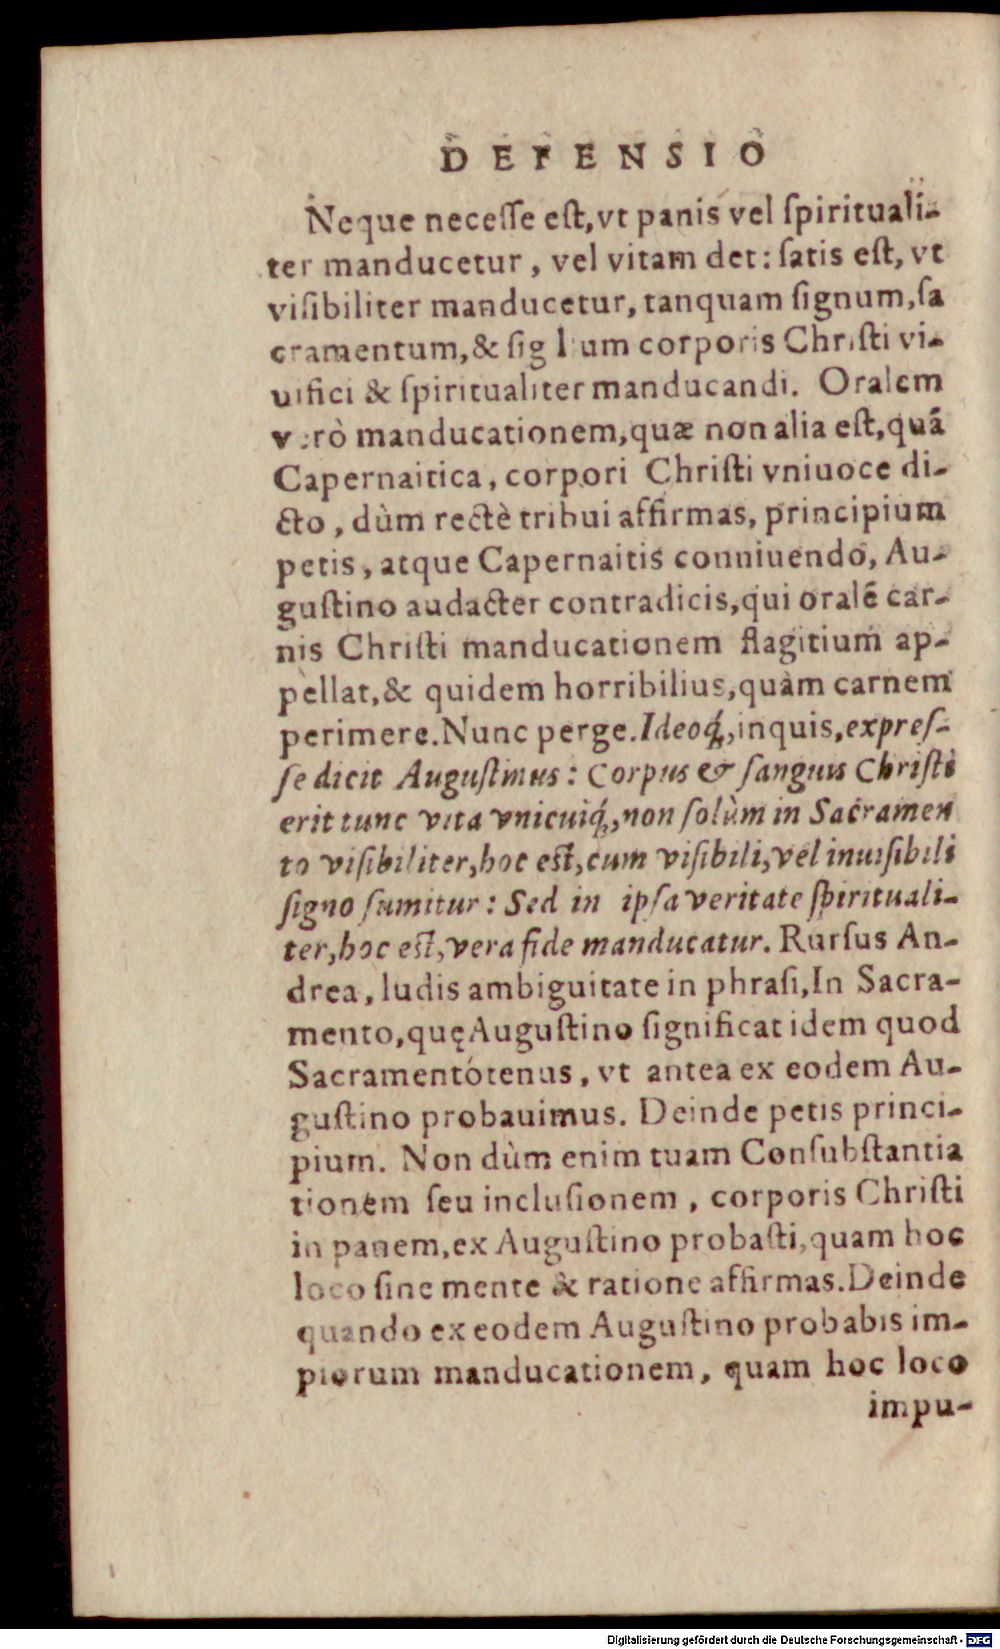 DEFENSIO
Neque necesse est, vt panis vel spirituali-
ter manducetur, vel vitam det: satis est, vt
visibiliter manducetur, tanquam signum, sa
cramentum, & sigillum corporis Christi vi-
uifici & spiritualiter manducandi. Oralem
verò manducationem, quæ non alia est, quã
Capernaitica, corpori Christi vniuoce di-
cto, dùm rectè tribui affirmas, principium
petis, atque Capernaitis conniuendo, Au-
gustino audacter contradicis, qui oralẽ car-
nis Christi manducationem flagitium ap-
pellat, & quidem horribilius, quàm carnem
perimere. Nunc perge. Ideoq́;, inquis, expres-
se dicit Augustinus: Corpus & sanguis Christi
erit tunc vita vnicuiq́;, non solùm in Sacramen
to visibiliter, hoc est, cum visibili, vel inuisibili
signo sumitur: Sed in ipsa veritate spirituali-
ter, hoc est, vera fide manducatur. Rursus An-
drea, ludis ambiguitate in phrasi, In Sacra-
mento, quę Augustino significat idem quod
Sacramentótenus, vt antea ex eodem Au-
gustino probauimus. Deinde petis princi-
pium. Non dùm enim tuam Consubstantia
tionem seu inclusionem, corporis Christi
in panem, ex Augustino probasti, quam hoc
loco sine mente & ratione affirmas. Deinde
quando ex eodem Augustino probabis im-
piorum manducationem, quam hoc loco
impu-
Digitalisierung gefördert durch die Deutsche Forschungsgemeinschaft - DFG